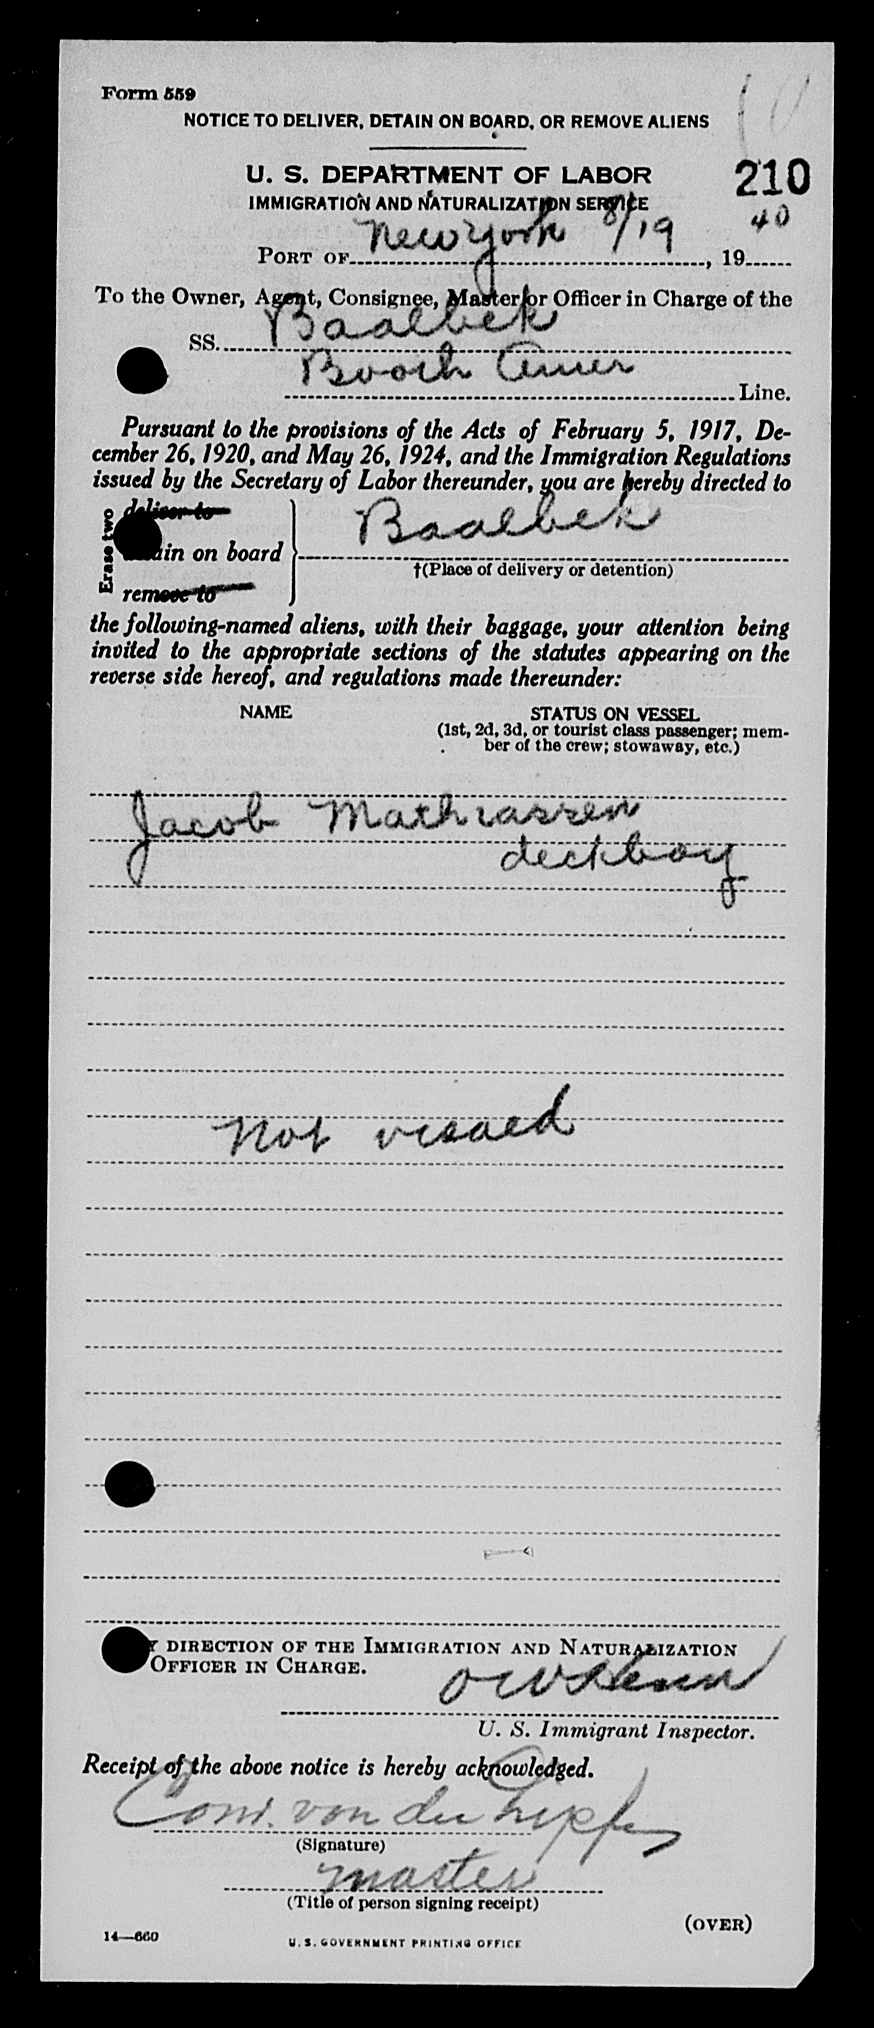 Form 559
NOTICE TO DELIVER, DETAIN ON BOARD, OR REMOVE ALIENS
U. S. DEPARTMENT OF LABOR
210
IMMIGRATION AND NATURALIZATION SERVICE
PORT OF New York 8/19, 1940
To the Owner, Agent, Consignee, Master or Officer in Charge of the
SS. Baalbek
Booth Amer Line.
Pursuant to the provisions of the Acts of February 5, 1917, De-
cember 26, 1920, and May 26, 1924, and the Immigration Regulations
issued by the Secretary of Labor thereunder, you are hereby directed to
Erase two
deliver to
in on board Baalbek
†(Place of delivery or detention)
remove to
the following-named aliens, with their baggage, your attention being
invited to the appropriate sections of the statutes appearing on the
reverse side hereof, and regulations made thereunder:
NAME STATUS ON VESSEL
(1st, 2d, 3d, or tourist class passenger; mem-
ber of the crew; stowaway, etc.)
Jacob Mathiassen
deckboy
Not visaed
DIRECTION OF THE IMMIGRATION AND NATURALIZATION
OFFICER IN CHARGE.
U. S. Immigrant Inspector.
Receipt of the above notice is hereby acknowledged.
von der
(Signature)
master
(Title of person signing receipt)
(OVER)
14—660
U. S. GOVERNMENT PRINTING OFFICE